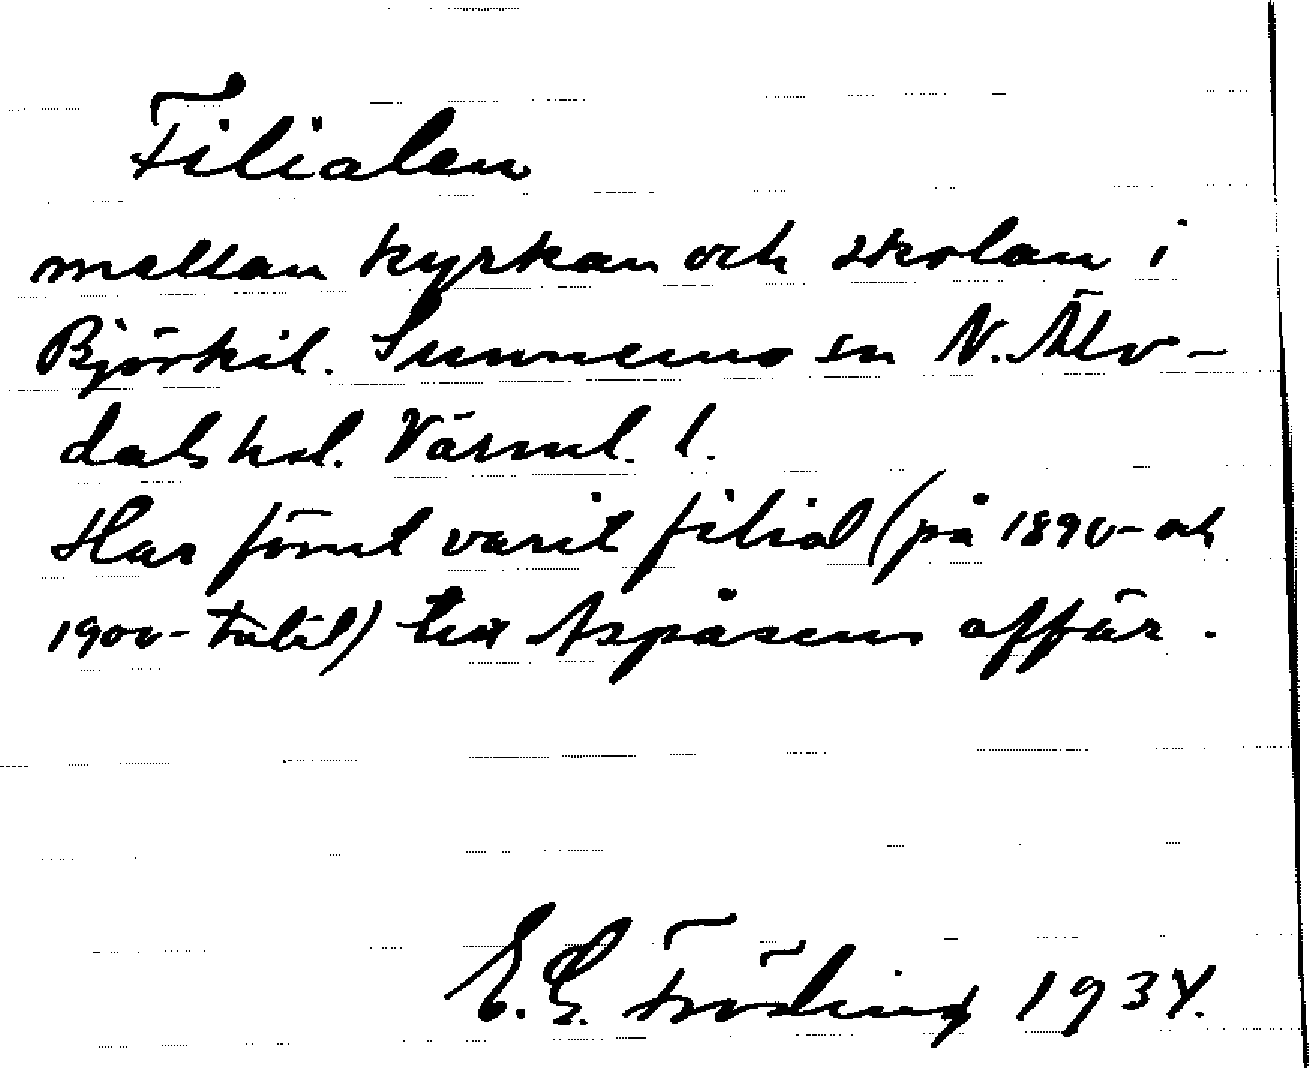 Filialen
mellan kyrkan och skolan i
Björkil. Sunnemo sn N. Älv-
dals hd. Värml. l.
Har förut varit filial (på 1890- och
1900-talet) till Aspåsens affär.
E. G. Fröding 1934.